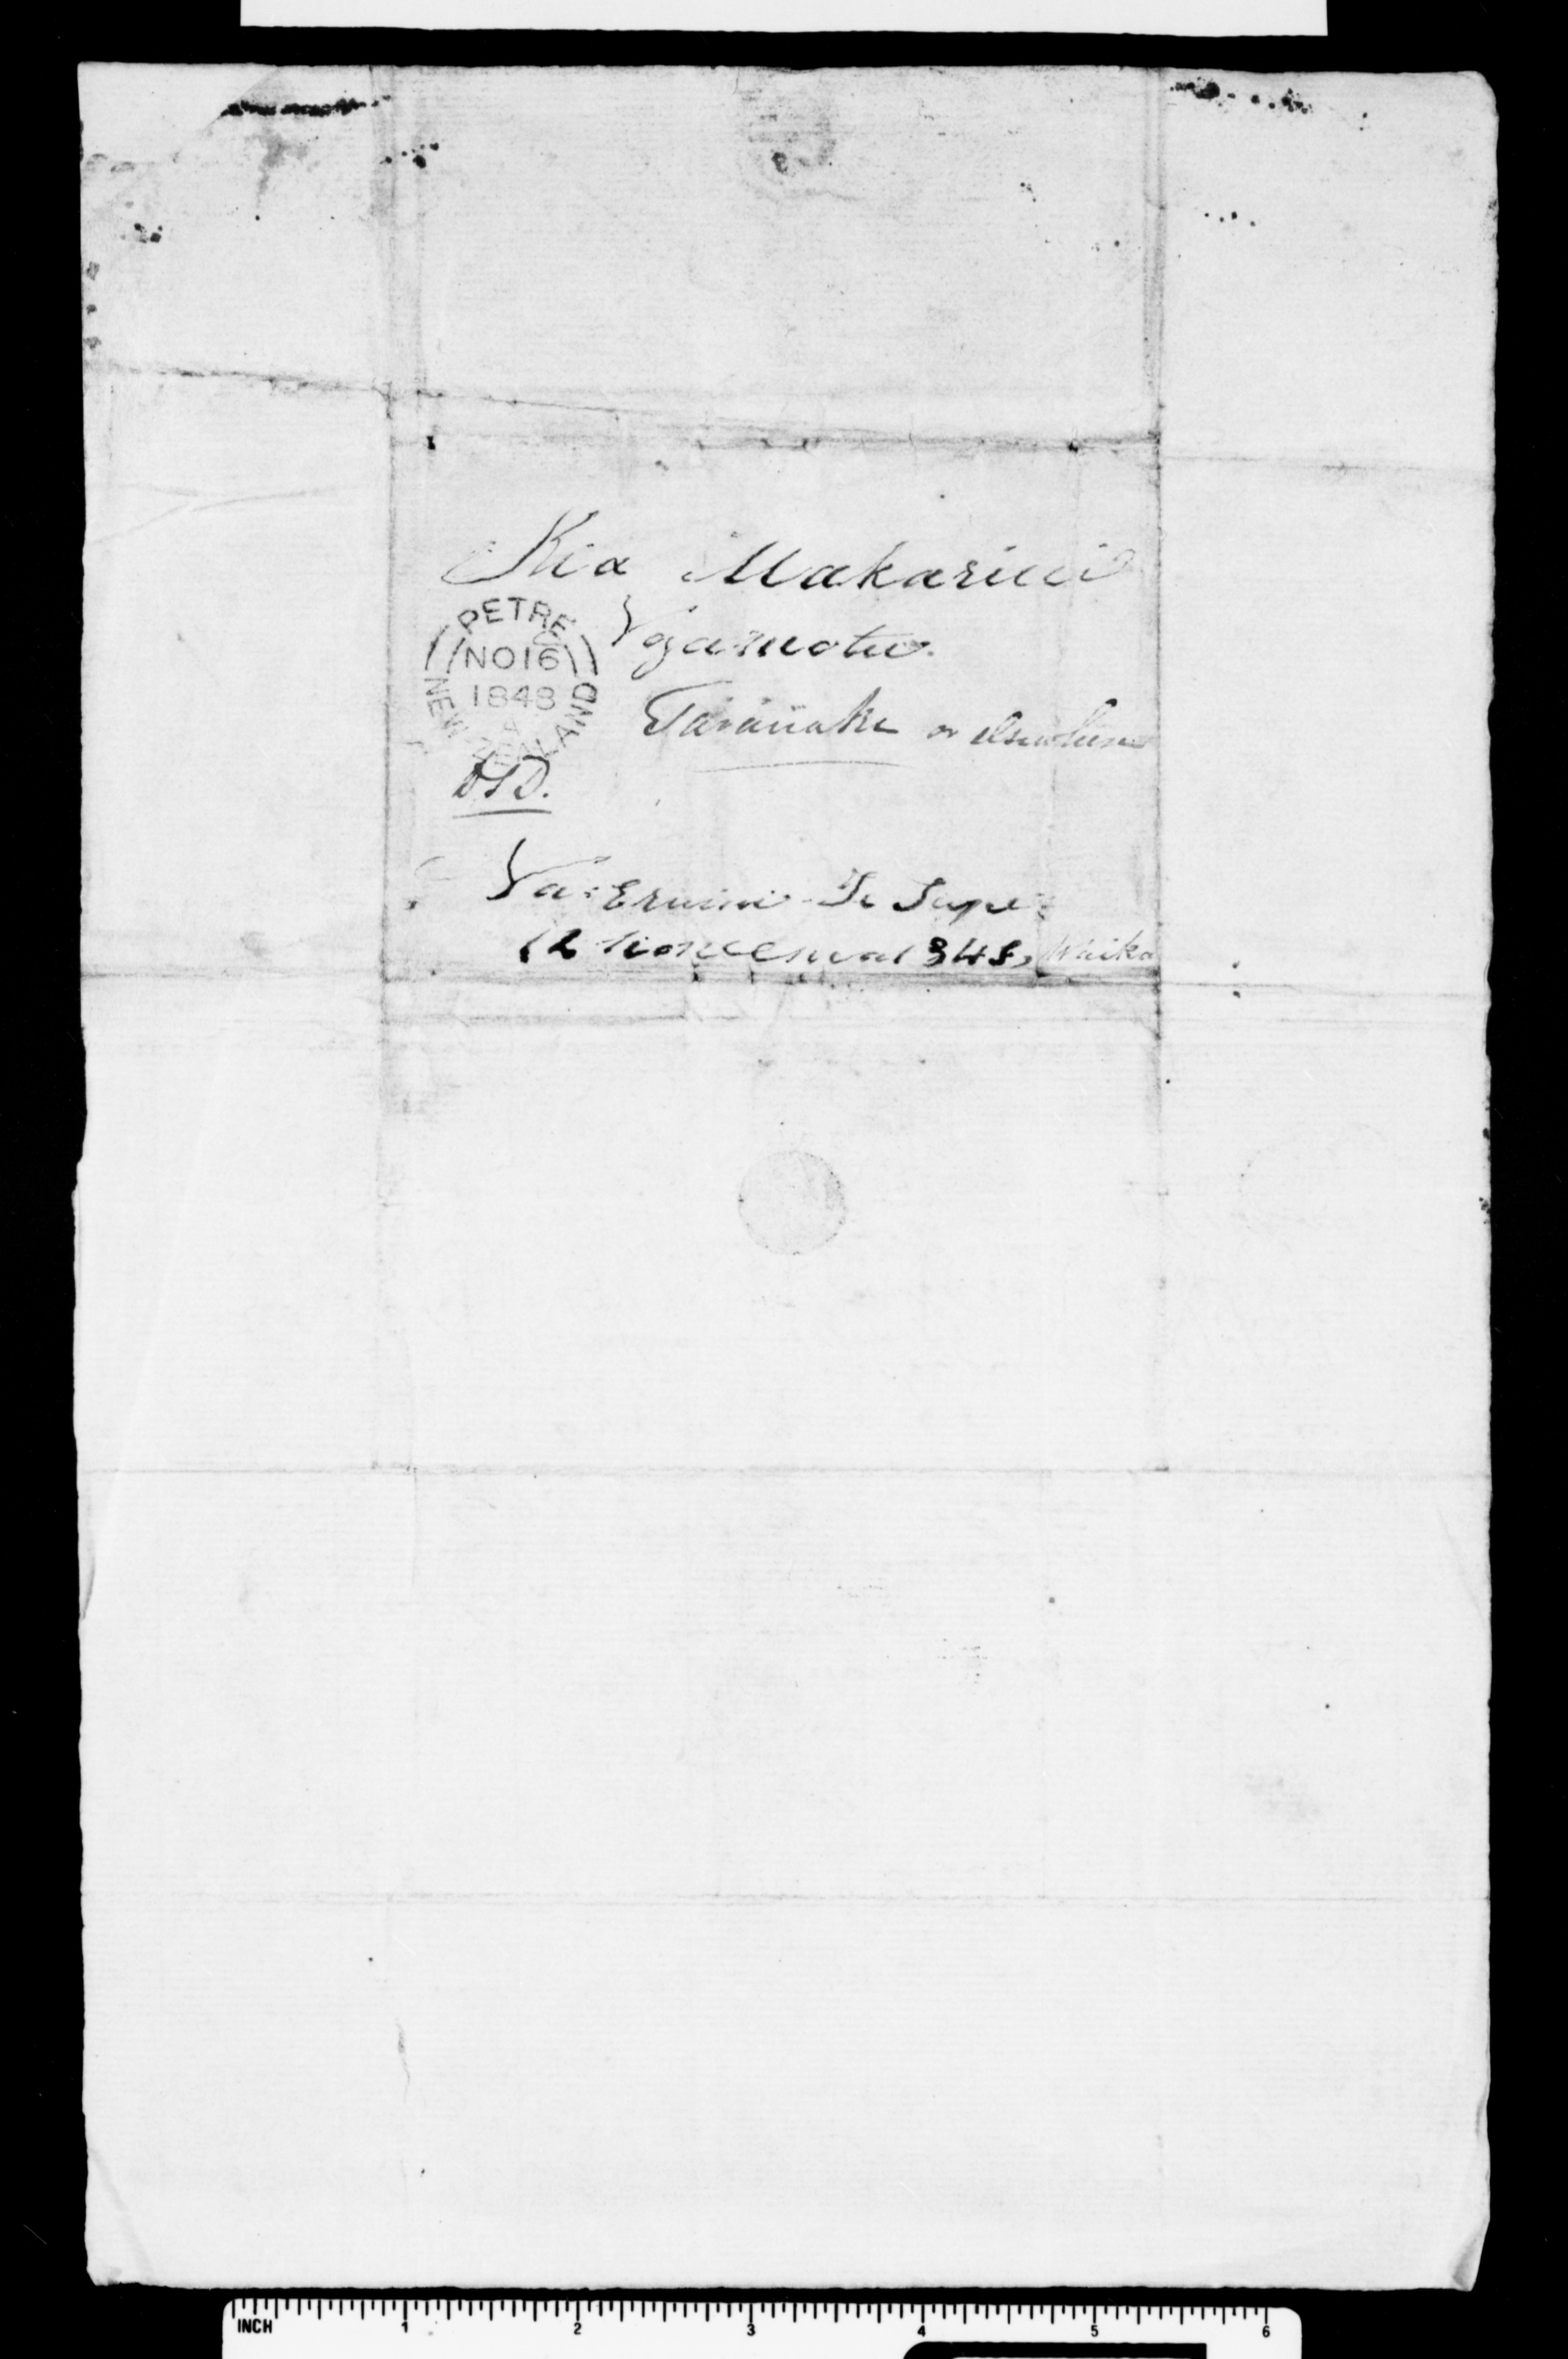 Kia Makarini
PETRE
NO 16
1848
A
NEW ZEALAND
Ngamotu
Taranaki or elsewhere
Na Eruini Te Tupe
12 1848, Waika
INCH 1 2 3 4 5 6